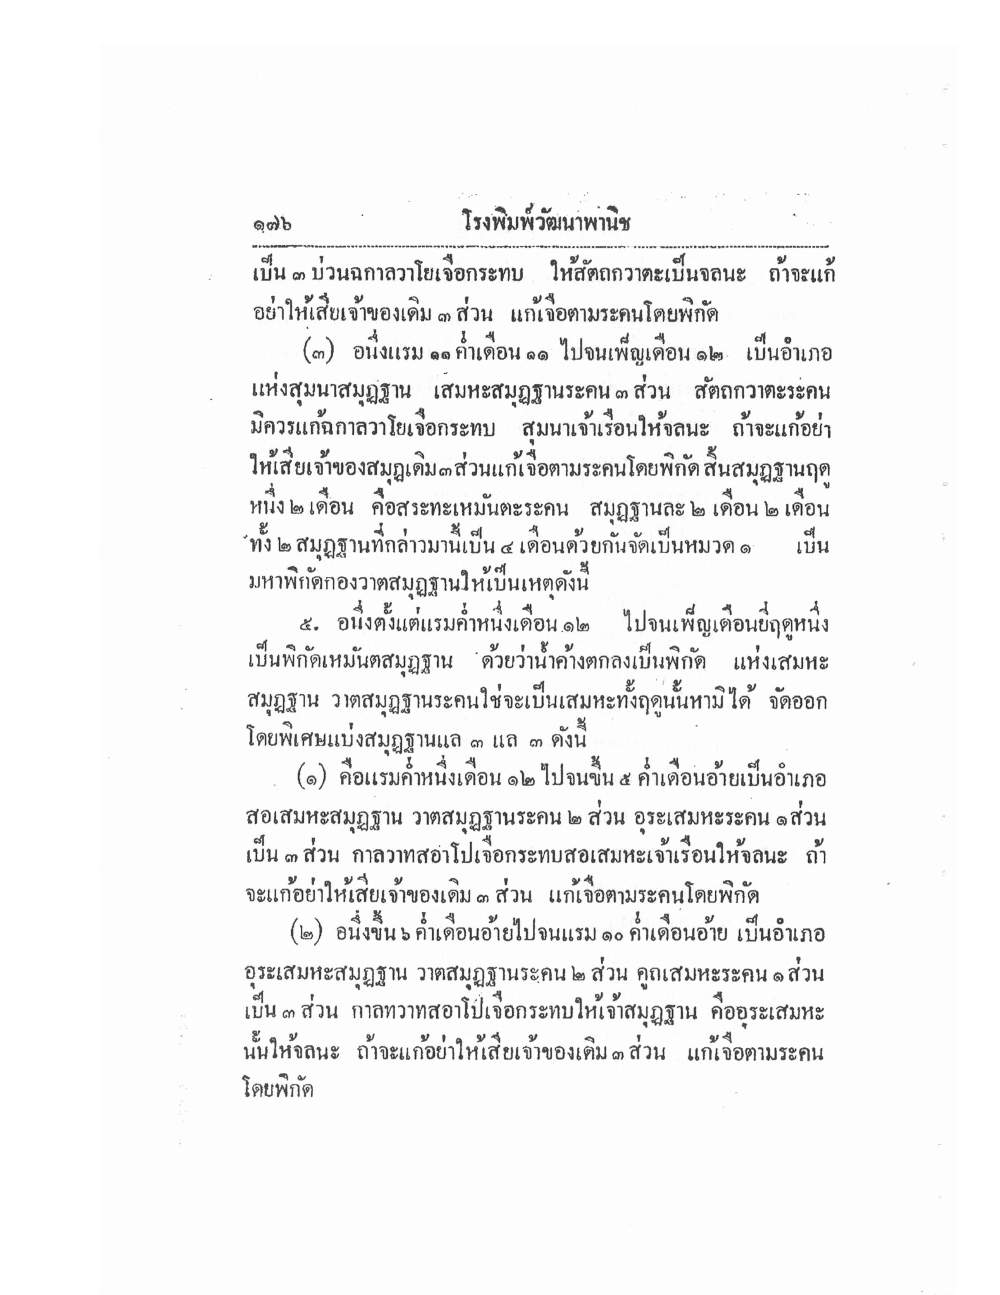 ๑๗๖ โรงพิมพ์วัฒนาพานิช
เป็น ๓ บ่วนฉกาลวาโยเจือกระทบ ให้สัตถกวาตะเป็นจลนะ ถ้าจะแก้
อย่าให้เสียเจ้าของเดิม ๓ ส่วน แก้เจือตามระคนโดยพิกัด
(๓) อนึ่งแรม ๑๑ ค่ำเดือน ๑๑ ไปจนเพ็ญเดือน ๑๒ เป็นอำเภอ
แห่งสุมนาสมุฏฐาน เสมหะสมุฏฐานระคน ๓ ส่วน สัตถกวาตะระคน
มิควรแก้ฉกาลวาโยเจือกระทบ สุมนาเจ้าเรือนให้จลนะ ถ้าจะแก้อย่า
ให้เสียเจ้าของสมุฏเดิม ๓ ส่วนแก้เจือตามระคนโดยพิกัด สิ้นสมุฏฐานฤดู
หนึ่ง ๒ เดือน คือสระทะเหมันตะระคน สมุฏฐานละ ๒ เดือน ๒ เดือน
ทั้ง ๒ สมุฏฐานที่กล่าวมานี้เป็น ๔ เดือนด้วยกันจัดเป็นหมวด ๑ เป็น
มหาพิกัดกองวาตสมุฏฐานให้เป็นเหตุดังนี้
๕. อนึ่งตั้งแต่แรมค่ำหนึ่งเดือน ๑๒ ไปจนเพ็ญเดือนยี่ฤดูหนึ่ง
เป็นพิกัดเหมันตสมุฏฐาน ด้วยว่าน้ำค้างตกลงเป็นพิกัด แห่งเสมหะ
สมุฏฐาน วาตสมุฏฐานระคนใช่จะเป็นเสมหะทั้งฤดูนั้นหามิได้ จัดออก
โดยพิเศษแบ่งสมุฏฐานแล ๓ แล ๓ ดังนี้
(๑) คือแรมค่ำหนึ่งเดือน ๑๒ ไปจนขึ้น ๕ ค่ำเดือนอ้ายเป็นอำเภอ
สอเสมหะสมุฏฐาน วาตสมุฏฐานระคน ๒ ส่วน อุระเสมหะระคน ๑ ส่วน
เป็น ๓ ส่วน กาลวาทสอาโปเจือกระทบสอเสมหะเจ้าเรือนให้จลนะ ถ้า
จะแก้อย่าให้เสียเจ้าของเดิม ๓ ส่วน แก้เจือตามระคนโดยพิกัด
(๒) อนึ่งขึ้น ๖ ค่ำเดือนอ้ายไปจนแรม ๑๐ ค่ำเดือนอ้าย เป็นอำเภอ
อุระเสมหะสมุฏฐาน วาตสมุฏฐานระคน ๒ ส่วน คูถเสมหะระคน ๑ ส่วน
เป็น ๓ ส่วน กาลทวาทสอาโปเจือกระทบให้เจ้าสมุฏฐาน คืออุระเสมหะ
นั้นให้จลนะ ถ้าจะแก้อย่าให้เสียเจ้าของเดิม ๓ ส่วน แก้เจือตามระคน
โดยพิกัด